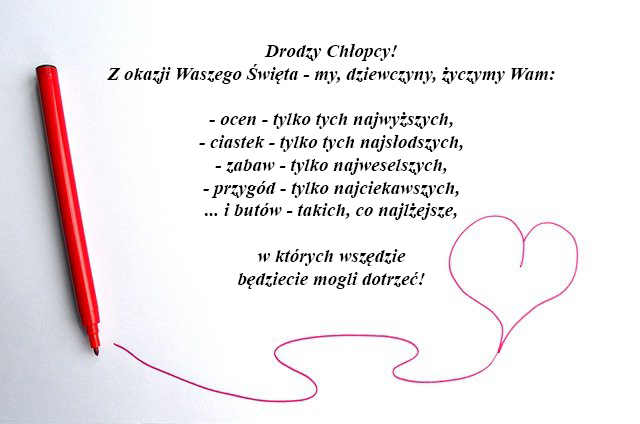 Drodzy Chłopcy!
Z okazji Waszego Święta - my, dziewczyny, życzymy Wam:
- ocen - tylko tych najwyższych,
- ciastek - tylko tych najsłodszych,
- zabaw - tylko najweselszych,
- przygód - tylko najciekawszych,
... i butów - takich, co najlżejsze,
w których wszędzie
będziecie mogli dotrzeć!